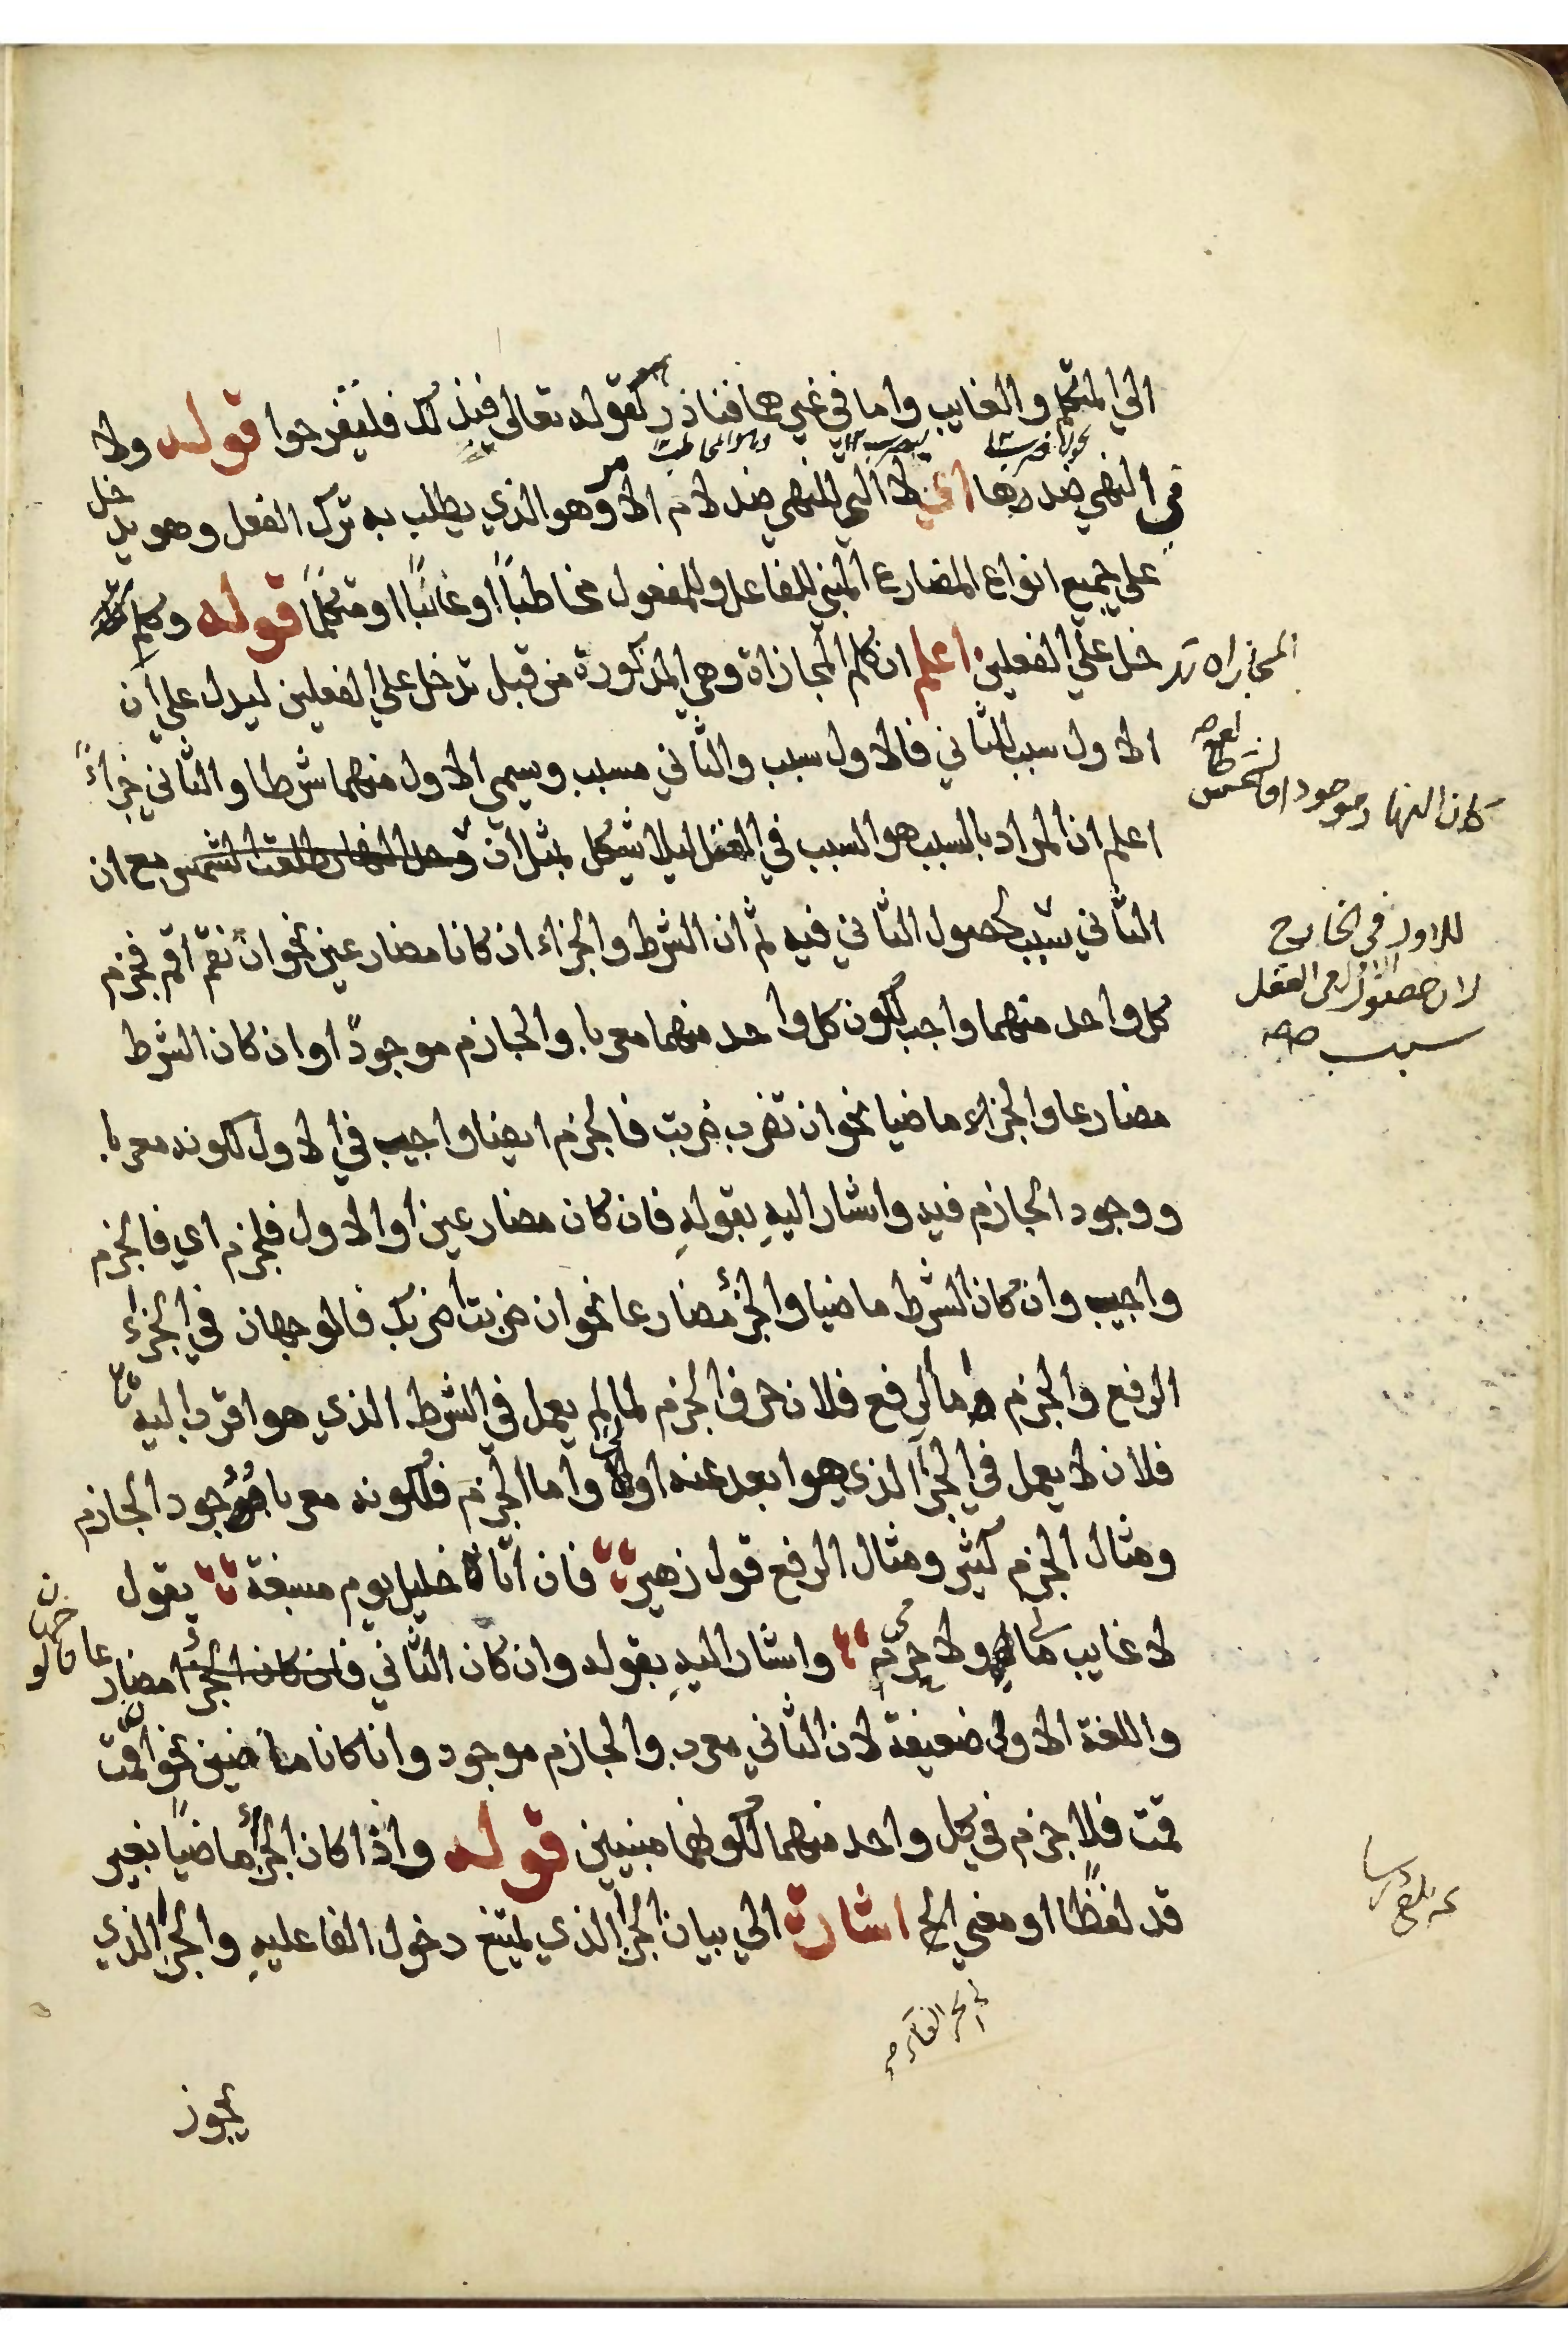 الي المتكلم والغايب واما في غيرهما فنادر كقوله تعالي فبذلك فليفرحوا قوله ولا
في النهي ضدها اعني لا التي للنهي ضد لام الامر وهو الذي يطلب به ترك الفعل وهو يدخل
علي جميع انواع المضارع المبني للفاعل وللمفعول مخاطباً او غائباً او متكلماً قوله وكلم
المجازاه تدخل علي الفعلين اعلم ان كلم المجازاة وهي المذكورة من قبل تدخل علي الفعلين ليدل علي أن
الاول سبب للثاني فالاول سبب والثاني مسبب ويسمي الاول منهما شرطا والثاني جزاءً
اعلم ان المراد بالسبب هو السبب في العقل ليلا يشكل بمثل ان وجد النهار طلعت الشمس مع ان
كان النهار موجودا فالشمس طالعة
الثاني سبب لحصول الثاني فيه ثم ان الشرط والجزاء ان كانا مضارعين نحو ان تقم اقم فجزم
للاول في الخارج
لان حصول الاول في العقل
سبب صح
كل واحد منهما واجب لكون كل واحد منهما معربا والجازم موجودًا وان كان الشرط
مضارعا والجزاء ماضيا نحو ان تضرب ضربت فالجزم ايضا واجب في الاول لكونه معربا
ووجود الجازم فيه واشار اليهِ بقولهِ فان كان مضارعين او الاول فلجزم اي فالجزم
واجب وان كان الشرط ماضيا والجزء مضارعا نحو ان ضربت اضربك فالوجهان في الجزاء
الرفع والجزم واما الرفع فلان حرف الجزم لما لم يعمل في الشرط الذي هو اقرب اليه
فلان لا يعمل في الجزا الذي هو ابعد عنه اولي واما الجزم فلكونه معربا ووجود الجازم
ومثال الجزم كثير ومثال الرفع قول زهير فان اتاه خليل يوم مسغبة يقول
لا غايب مالي ولا حرم واشار اليهِ بقوله وان كان الثاني فان كان الجزأ مضارعا فالوجهان
واللغة الاولي ضعيفة لان الثاني معرب والجازم موجود وان كانا ماضيين نحو ان قمت
قمت فلا جزم في كل واحد منهما لكونهما مبنيين قوله واذا كان الجزأ ماضيًا بغير
قد لفظًا او معني الخ اشارة الي بيان الجزا الذي يمتنع دخول الفا عليهِ والجزا الذي
يجوز